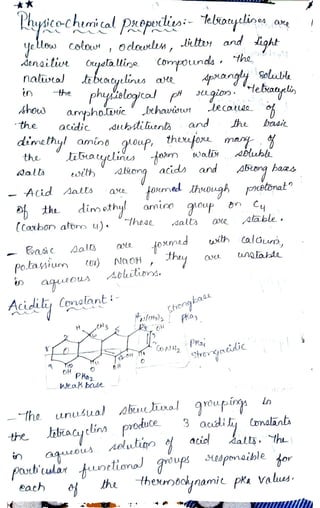 Physico-chemical properties:- Tetracyclines are
yellow colour, odourless, bitter and light
sensitive crystalline compounds. The
natural tetracyclines are sprangly soluble
in the physiological pH region. Tetracyclin
show amphoteric behaviour because of
the acidic substituents and the basic
dimethyl amino group, therefore many of
the tetracyclines form water soluble
salts with strong acids and strong bases
- Acid salts are formed through protonatn
of the dimethyl amino group on C4
(Carbon atom 4). These salts are stable.
- Basic salts are formed with calcium,
potassium (or) NaOH, they are unstable
in aqueous solutions.
Acidity Constant:-
strongbase
N(CH3)2 pKa3
CH3
OH
CONH2 PKa1
strongacidic
PKa2
Weak base
- The unusual structural groupings in
the tetracyclins produce 3 acidity constants
in aqueous solution of acid salts. The
particular functional groups responsible for
each of the thermodynamic pKa values.